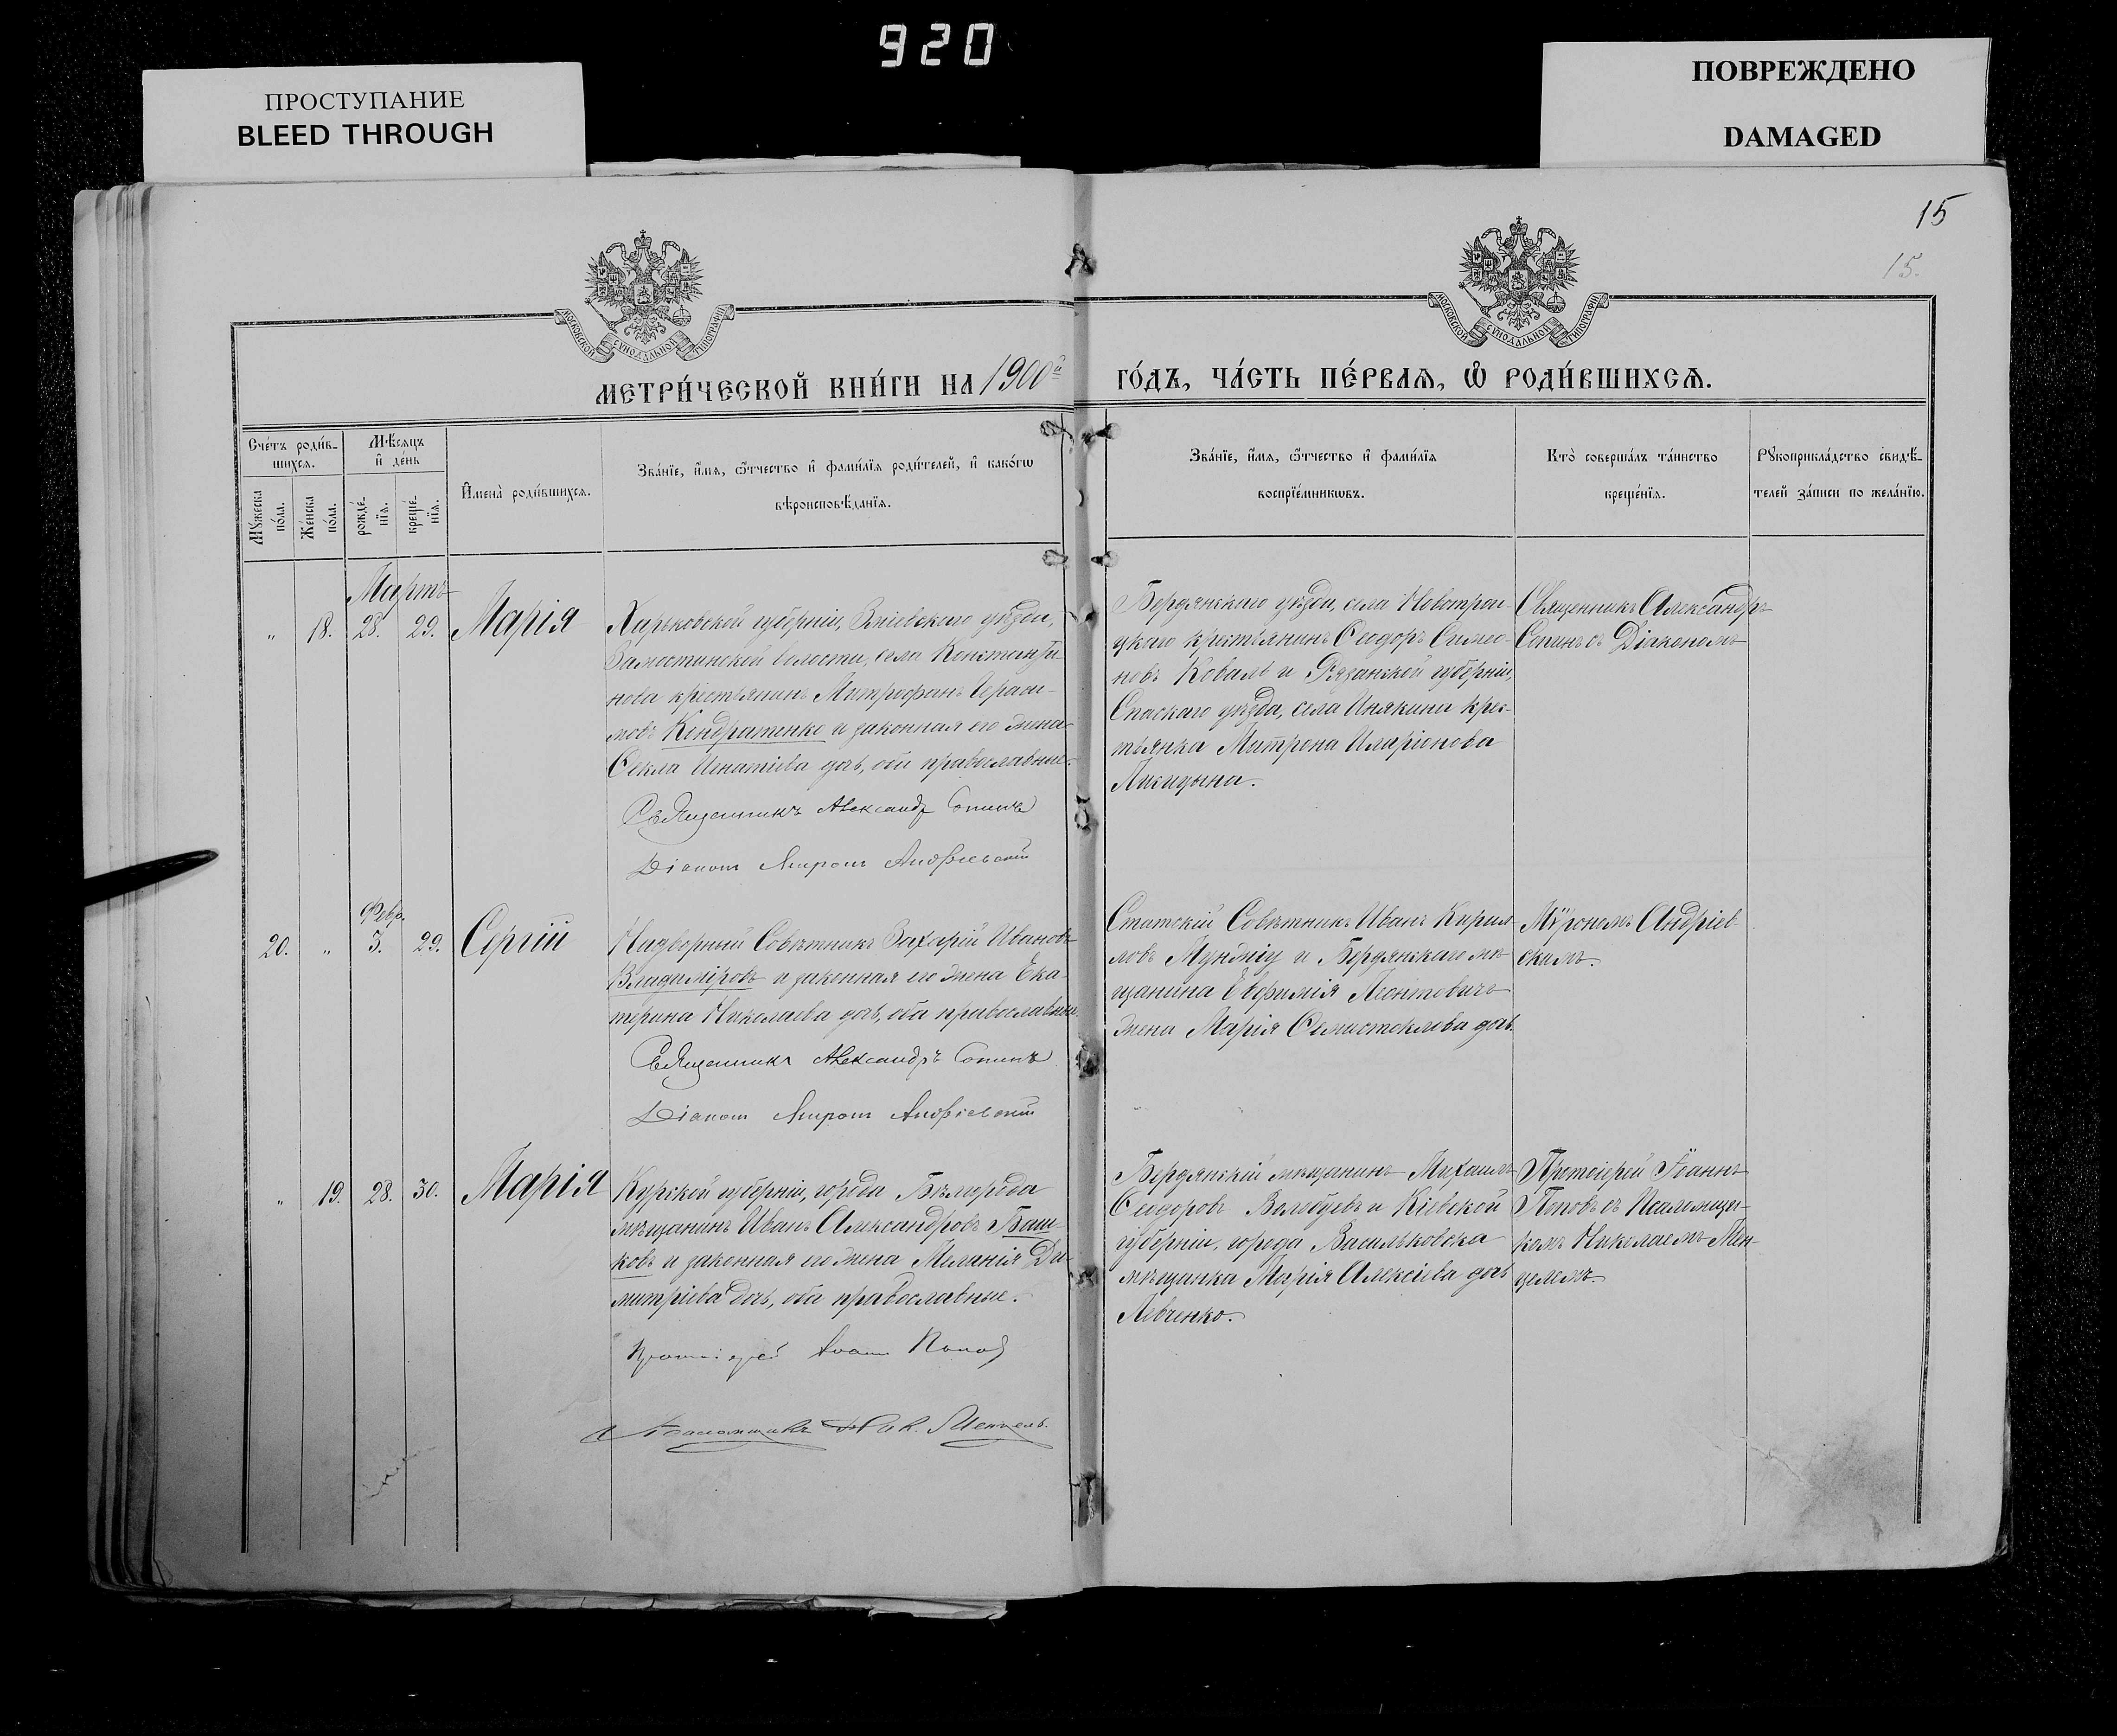 920
ПРОСТУПАНИЕ
BLEED THROUGH
ПОВРЕЖДЕНО
DAMAGED
15
15.
МОСКОВСКОЙ СѴНОДАЛЬНОЙ ТИПОГРАФІИ
МОСКОВСКОЙ СѴНОДАЛЬНОЙ ТИПОГРАФІИ
МЕТРИ́ЧЕСКОЙ КНИ́ГИ НА 1900й ГО́ДЪ, ЧА́СТЬ ПЕ́РВАЯ, Ѡ РОДИ́ВШИХСЯ.
Сче́тъ роди́в-
шихся.
Мꙋ́жеска
по́ла.
Же́нска
по́ла.
Мѣ́сяцъ
и҆ де́нь
рожде́-
нїя.
креще́-
нїя.
И҆мена̀ роди́вшихся.
Зва́нїе, и҆́мя, ѻ҆́тчество и҆ фами́лїя роди́телей, и҆ како́гѡ
вѣроисповѣ́данїя.
Зва́нїе, и҆́мя, ѻ҆́тчество и҆ фами́лїя
воспрїе́мникѡвъ.
Кто̀ соверша́лъ та́инство
креще́нїя.
Рꙋкоприкла́дство свидѣ́-
телей за́писи по жела́нїю.
Мартъ
„ 18. 28. 29. Марія
Харьковской губерніи, Зміевского уѣзда,
Замостянской волости, села Константи-
нова крестьянинъ Митрофанъ Гераси-
мовъ Кондратенко и законная его жена
Ѳекла Игнатіева дочь, оба православные.
Священникъ Александръ Сопинъ
Діаконъ Миронъ Андріевскій
Бердянскаго уѣзда, села Новотрои-
цкаго крестьянинъ Ѳеодоръ Симео-
новъ Коваль и Рязанской губерніи,
Спаскаго уѣзда, села Инякина крес-
тьянка Матрона Иларіонова
Священникъ Александръ
Сопинъ съ Діакономъ
Февр.
20. „ 3. 29. Сергій
Надворный Совѣтникъ Захарій Ивановъ
Владиміровъ и законная его жена Ека-
терина Николаева дочь, оба православны
Священникъ Александръ Сопинъ
Діаконъ Миронъ Андріевскій
Статскій Совѣтникъ Иванъ Кирил-
ловъ и Бердянскаго мѣ
щанина Евфимія Леонтовичъ
жена Марія Ѳемистоклова дочь
Мѵрономъ Андріев-
скимъ.
„ 19. 28. 30. Марія
Курской губерніи, города Бѣлгорода
мѣщанинъ Иванъ Александровъ Баш-
ковъ и законная его жена Меланія Ди-
митріева дочь, оба православные.
Протоіерей Іоаннъ Поповъ
Псаломщикъ Ник. Менцель.
Бердянскій мѣщанинъ Михаилъ
Ѳеодоровъ Волобуевъ и Кіевской
губерніи, города Васильковска
мѣщанка Марія Алексіева дочь
Левченко.
Протоіерей Іоаннъ
Поповъ съ Псаломщи-
комъ Николаемъ Мен-
целемъ.